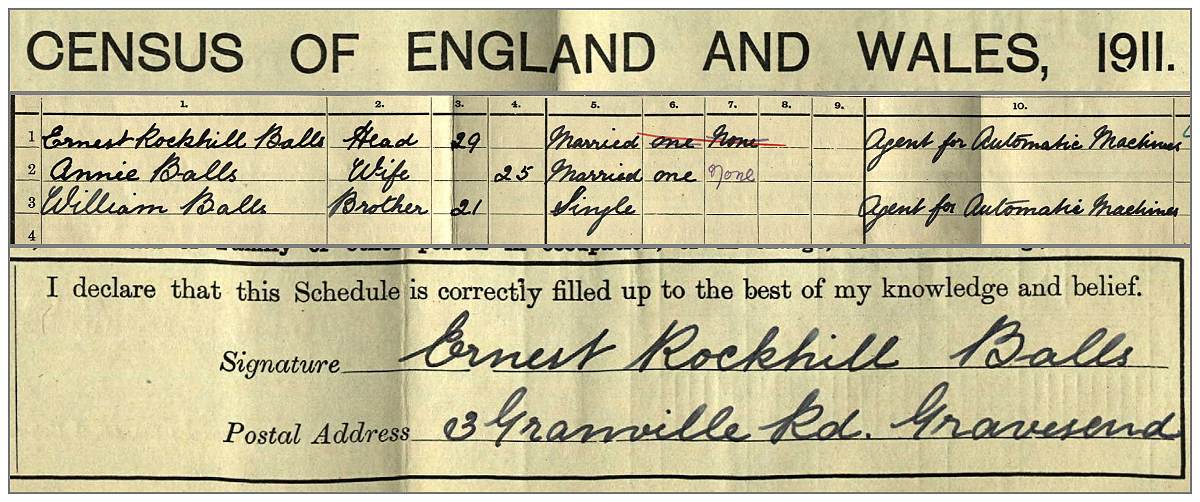 CENSUS OF ENGLAND AND WALES, 1911.
1. 2. 3. 4. 5. 6. 7. 8. 9. 10.
1 Ernest Rockhill Balls Head 29 Married one None Agent for Automatic Machines
2 Annie Balls Wife 25 Married one None
3 William Balls Brother 21 Single Agent for Automatic Machines
4
I declare that this Schedule is correctly filled up to the best of my knowledge and belief.
Signature Ernest Rockhill Balls
Postal Address 3 Granville Rd. Gravesend